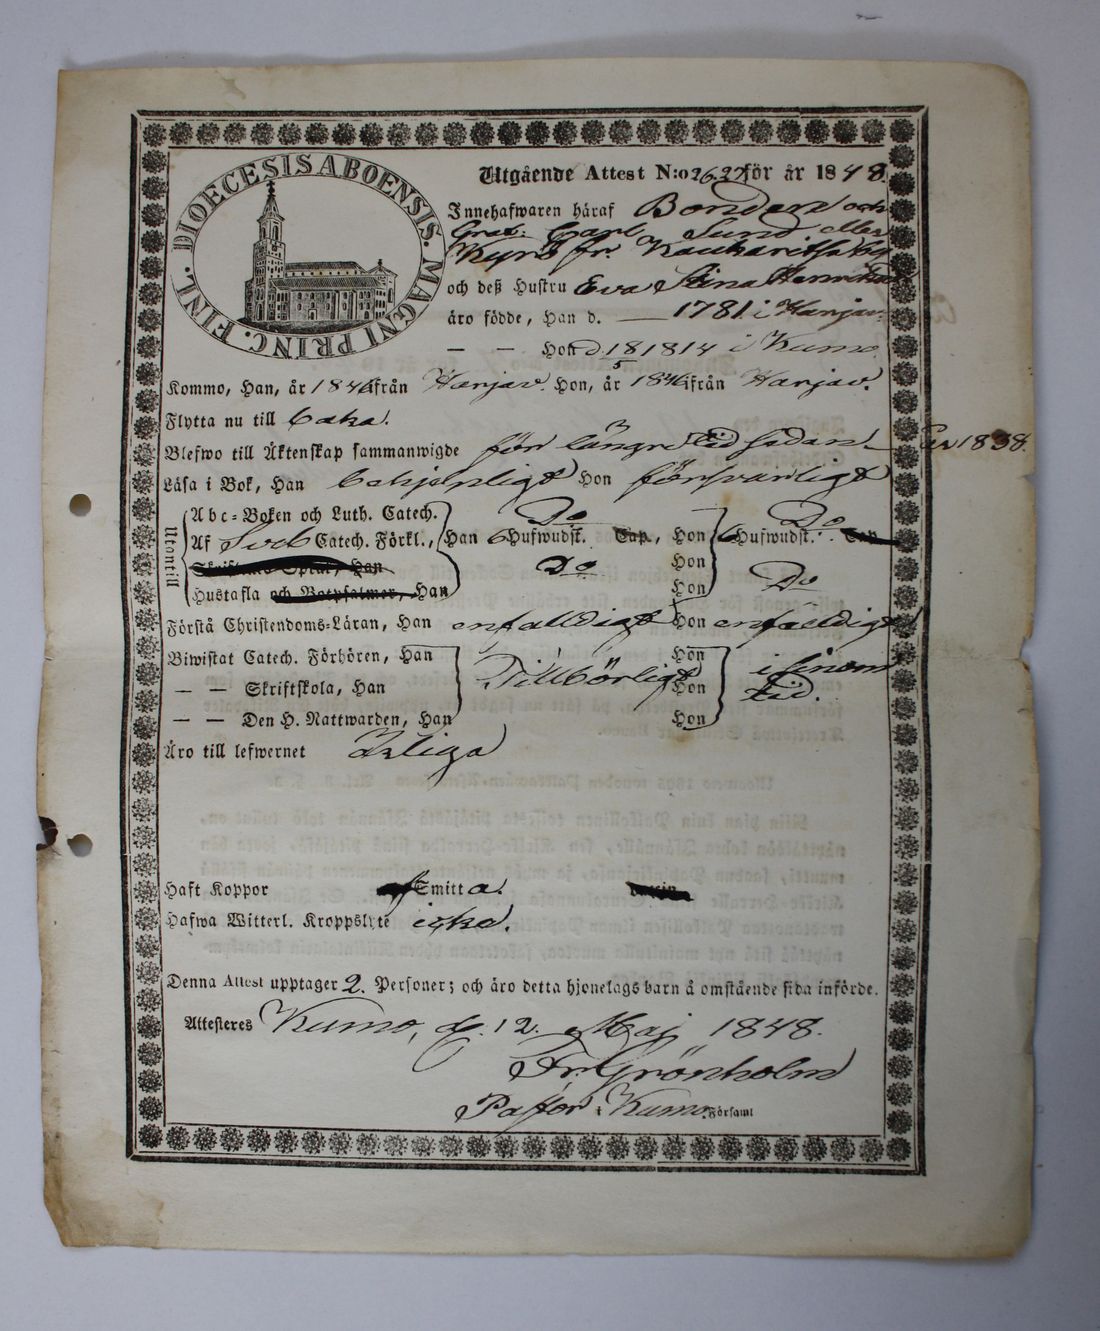 DIOECESIS ABOENSIS. MAGNI PRINC. FINL.
Utgående Attest N:o 262 för år 1848
Innehafwaren häraf Bonden och
Grat. Carl Sund eller
Kyrö fr. Kaukaritsa by
och deß Hustru Eva Stina Henriks
äro födde, Han d. — 1781 i Harjav.
— — Hon d 18/5 1814 i Kumo
Kommo, Han, år 1846 ifrån Harjav. Hon, år 1846 ifrån Harjav.
Flytta nu till baka.
Blefwo till Äktenskap sammanwigde för längre tid sedan år 1838.
Läsa i Bok, Han behjenligt Hon försvarligt
Utantill
Abc-Boken och Luth. Catech. Do Do
Af Sveb Catech. Förkl., Han 6 Hufwudst. Cap., Hon 6 Hufwudst. Cap
Han Do Hon
Hustafla och Botpsalmer, Han Hon Do
Förstå Christendoms-Läran, Han enfalldigt Hon enfaldigt
Biwistat Catech. Förhören, Han Hon
— — Skriftskola, Han Tillbörligt Hon i sinom tid.
— — Den H. Nattwarden, Han Hon
Äro till lefwernet Ärliga
Haft Koppor Smitta.
Hafwa Witterl. Kroppslyte icke.
Denna Attest upptager 2 Personer; och äro detta hjonelags barn å omstående sida införde.
Attesteres Kumo, d. 12. Maj 1848.
Fr. Grönholm
Pastor i Kumo Församl